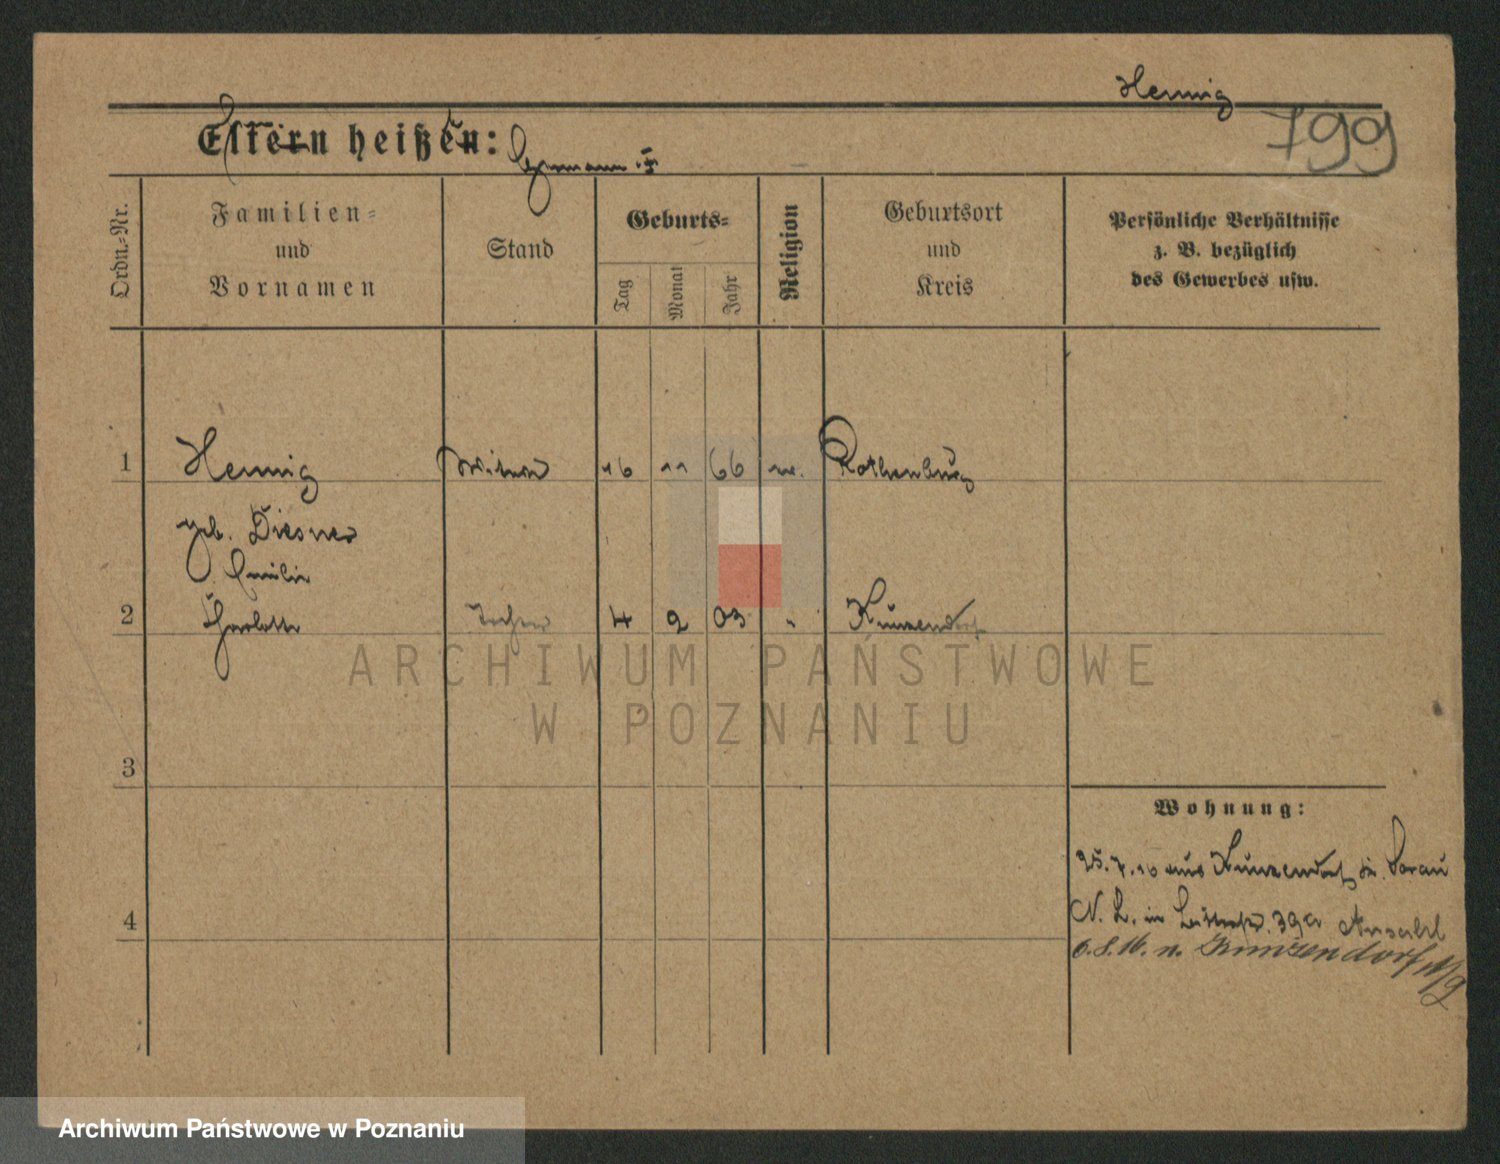 Hennig
799
Eltern heißen:
Hermann †
Ordn.=Nr.
Familien=
und
Vornamen
Stand
Geburts=
Tag
Monat
Jahr
Religion
Geburtsort
und
Kreis
Persönliche Verhältnisse
z. B. bezüglich
des Gewerbes usw.
1 Hennig Witwe 16 11 66 Rothenburg
geb. Diesner
Emilie
2 Charlotte Tochter 4 2 03 " Kunzendorf
3
4
Wohnung:
25.7.10 aus Kunzendorf Sorau
N. L. in 39a
n. Kunzendorf
ARCHIWUM PAŃSTWOWE
W POZNANIU
Archiwum Państwowe w Poznaniu